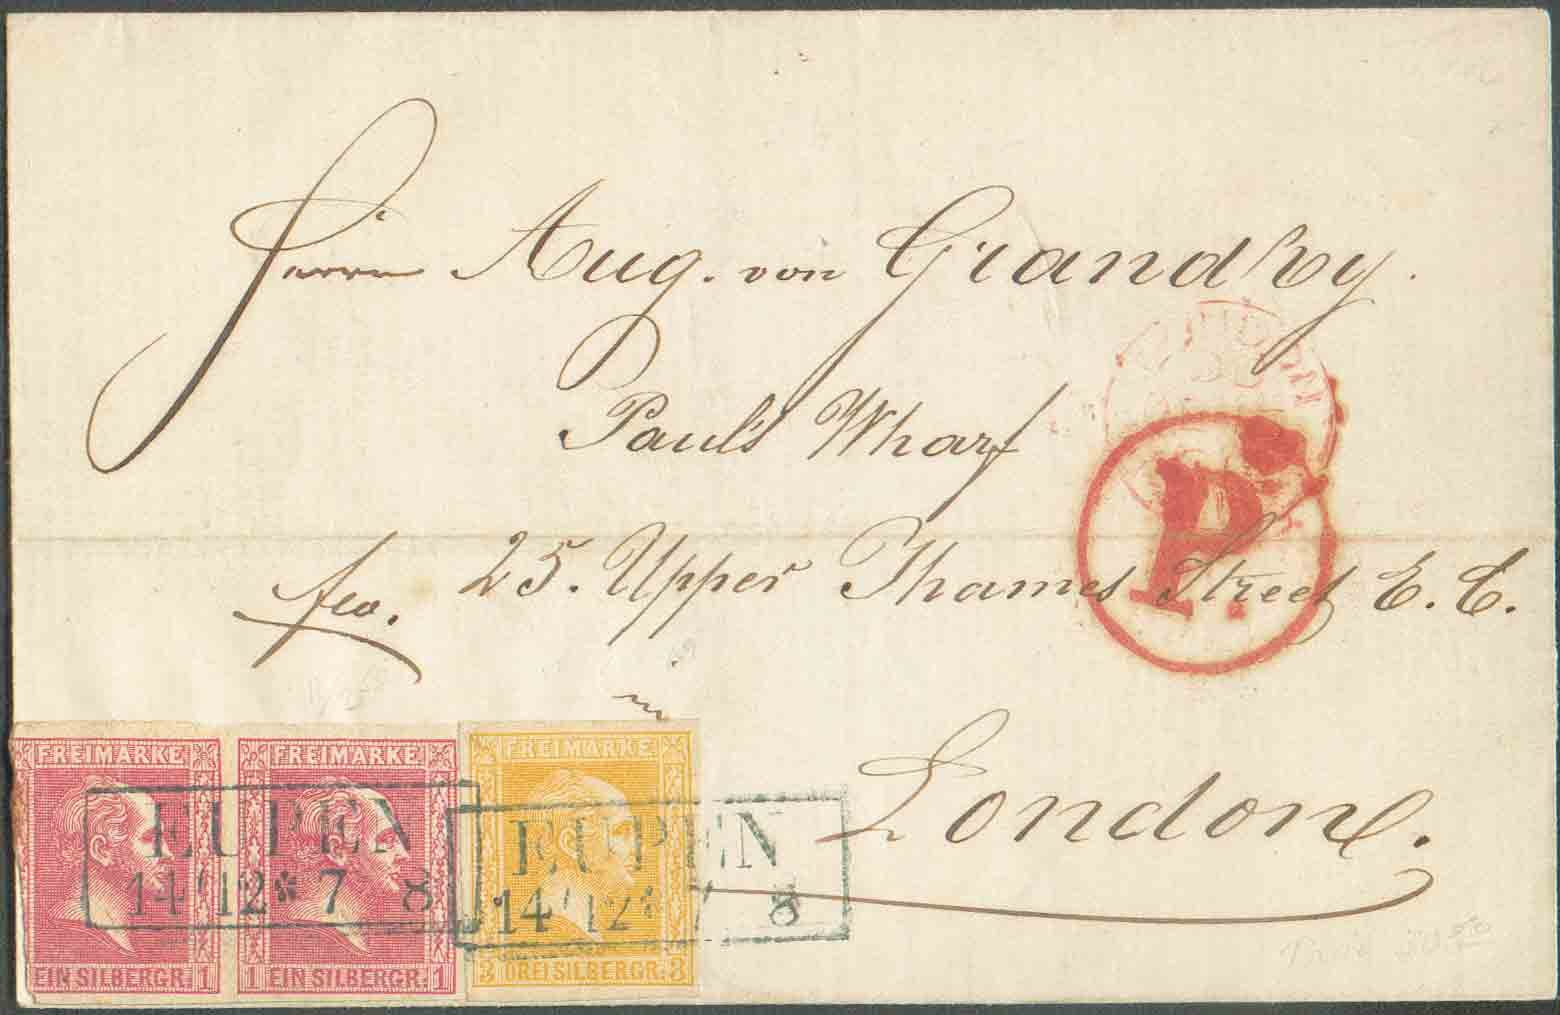 Herrn Aug. von Grandry.
Paul's Wharf
fco. 25. Upper Thames Street E. C.
in
London.
P.
FREIMARKE
1 EIN SILBERGR. 1
FREIMARKE
1 EIN SILBERGR. 1
FREIMARKE
3 DREI SILBERGR. 3
EUPEN
14 12 * 7 8
EUPEN
14 12 * 7 8